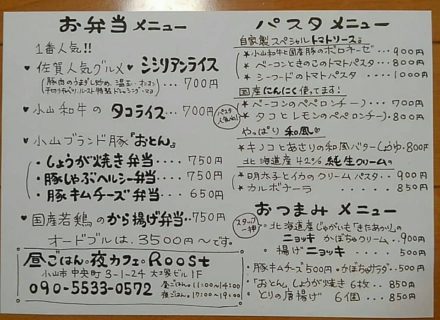 お弁当 メニュー
1番人気!!
♥ 佐賀人気グルメ♥ シシリアンライス
・・・ 700円
♥ 小山和牛の タコライス・・・ 700円
♥ 小山ブランド豚『おとん』
・しょうが焼き弁当・・・・ 750円
・豚しゃぶヘルシー弁当・・ 750円
・豚キムチーズ弁当・・・ 650円
♥ 国産若鶏のから揚げ弁当・・700円
オードブルは、3500円〜です。
昼ごはん。夜カフェ。Roost
小山市中央町3-1-24 大塚ビル1F
090-5533-0572
昼ごはん。11:00〜14:00
パスタメニュー
自家製スペシャルトマトソース
＊小山和牛と国産豚のボロネーゼ・・・900円
＊ベーコンときのこのトマトパスタ・・・800円
＊シーフードのトマトパスタ・・・・1000円
国産にんにく使ってます!
＊ベーコンのペペロンチーノ・・・700円
＊タコとレモンのペペロンチーノ・・800円
やっぱり 和風
＊キノコとあさりの和風バターしょうゆ・800円
北海道産42%純生クリーム
＊明太子とイカのクリームパスタ・・900円
＊カルボナーラ・・・・850円
おつまみ メニュー
・北海道産じゃがいも「きたあかり」の
ニョッキ かぼちゃクリーム・900円
・揚げニョッキ・・・500円
・豚キムチーズ500円・かぼちゃサラダ・・500円
・『おとん』しょうが焼き6枚・・850円
・とりの唐揚げ 6個・・・850円